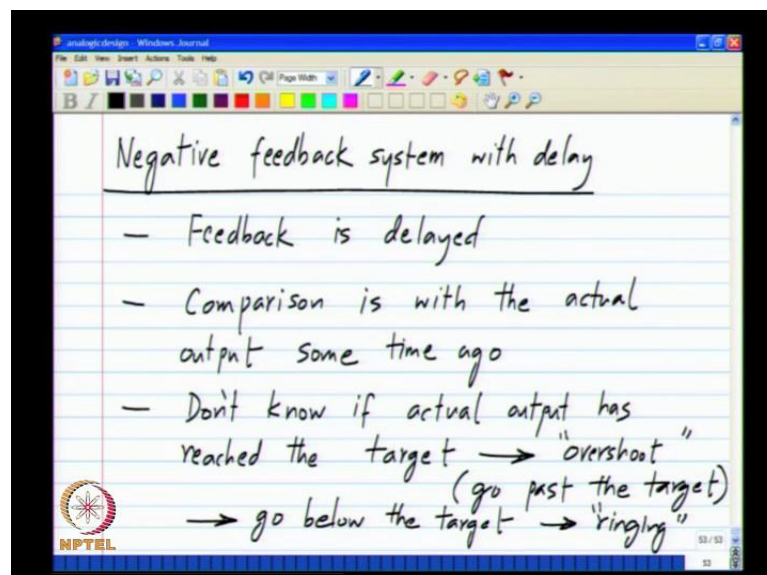 analogicdesign - Windows Journal
File Edit View Insert Actions Tools Help
Page Width
B I
Negative feedback system with delay
— Feedback is delayed
— Comparison is with the actual
output some time ago
— Don't know if actual output has
reached the target → "overshoot"
(go past the target)
→ go below the target → "ringing"
NPTEL
53 / 53
53